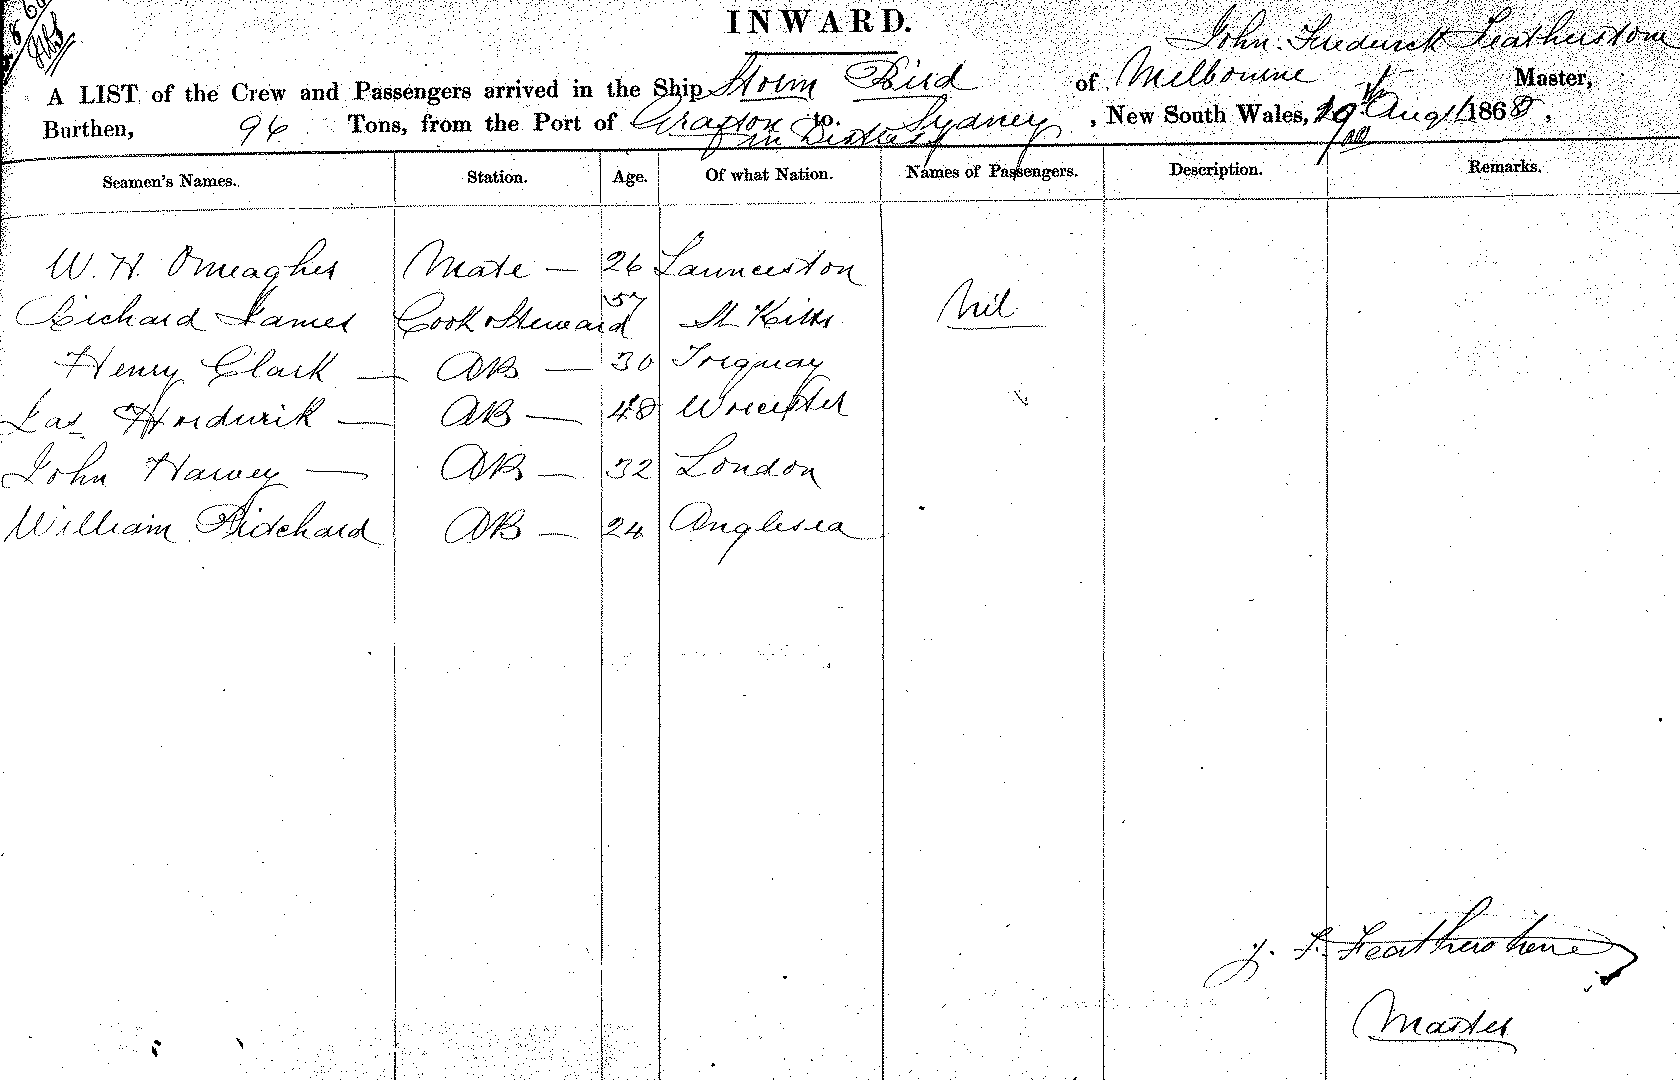 INWARD.
John Frederick Featherstone
A LIST of the Crew and Passengers arrived in the Ship Storm Bird of Melbourne Master,
Burthen, 96 Tons, from the Port of Grafton to. Sydney , New South Wales, 19th Augt 1868 .
in Distress
Seamen's Names. Station. Age. Of what Nation. Names of Passengers. Description. Remarks.
W. H. Omeagher Mate — 26 Launceston
Richard James Cook & Steward 57 St Kitts Nil
Henry Clark — AB — 30 Torquay
Jas Hordwick — AB — 48 Worcester
John Harvey — AB — 32 London
William Pridchard AB — 24 Anglesea
J. F. Featherstone
Master